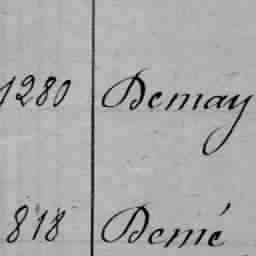 1280 Demay
818 Demé